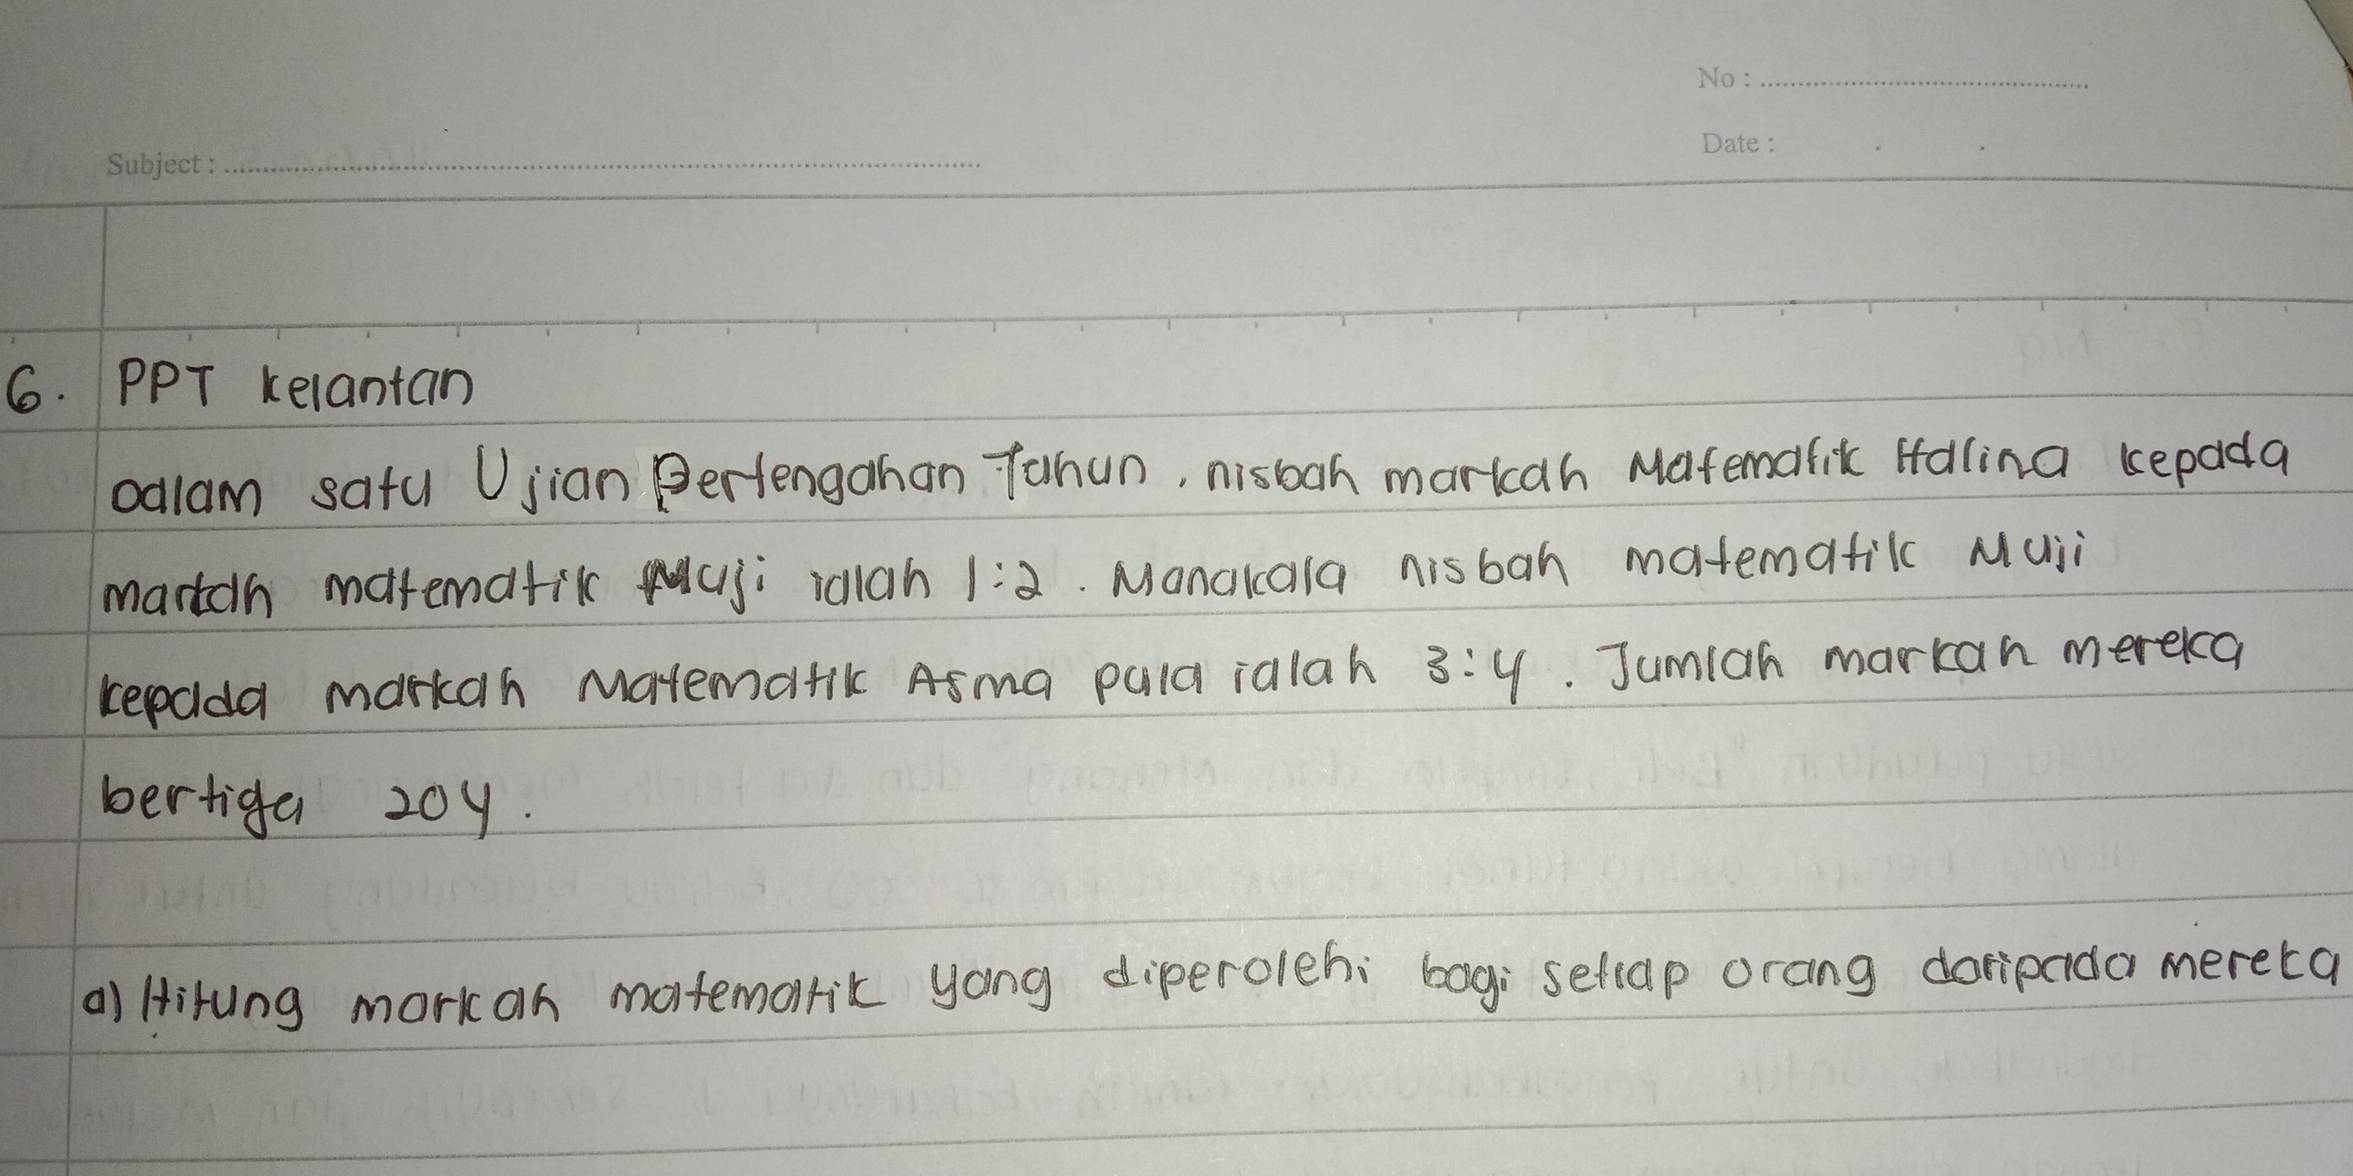 No :
Date :
Subject :
6. PPT kelantan
Dalam satu Ujian Pertengahan Tahun, nisbah markah Matematik Halina kepada
markah matematik Muji ialah 1:2. Manakala nisbah matematik Muji
kepada markah Matematik Asma pula ialah 3:4. Jumlah markah mereka
bertiga 204.
a) Hitung markah matematik yang diperolehi bagi setiap orang daripada mereka